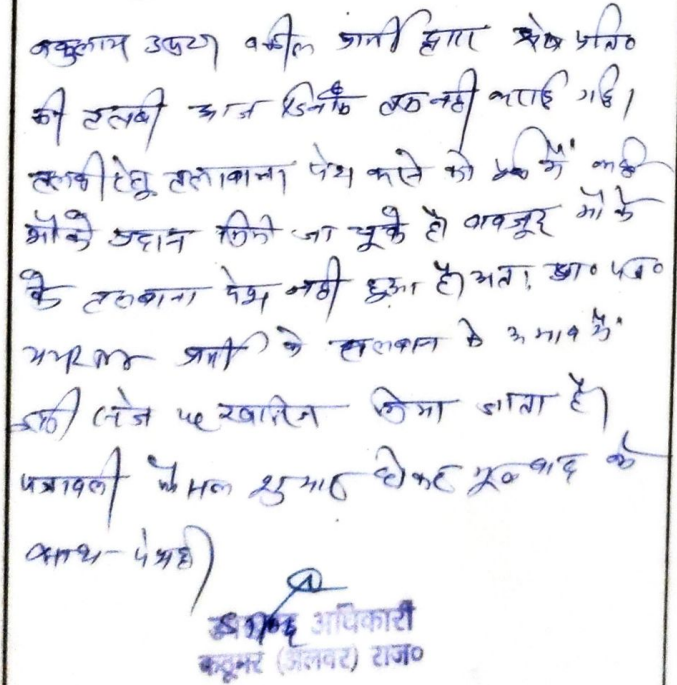 वकुलाय उपरा वकील प्रार्थी द्वारा शेष प्रति०
की तलबी आज दिनांक तक नही कराई गई।
तलबी हेतु तलवाना पेश करने को पूर्व में कई
मौके प्रदान किये जा चूके है वावजूद मौके
के तलवाना पेश नही हुआ है। अता, प्रा० पत्र०
प्रार्थी के तलवाना के अभाव में
इसी स्तेज पर खारिज किया जाता है।
पत्रावली फैसल शुमार होकर मू० वाद के
साथ पेश हो।
उपखण्ड अधिकारी
कठूमर (अलवर) राज०